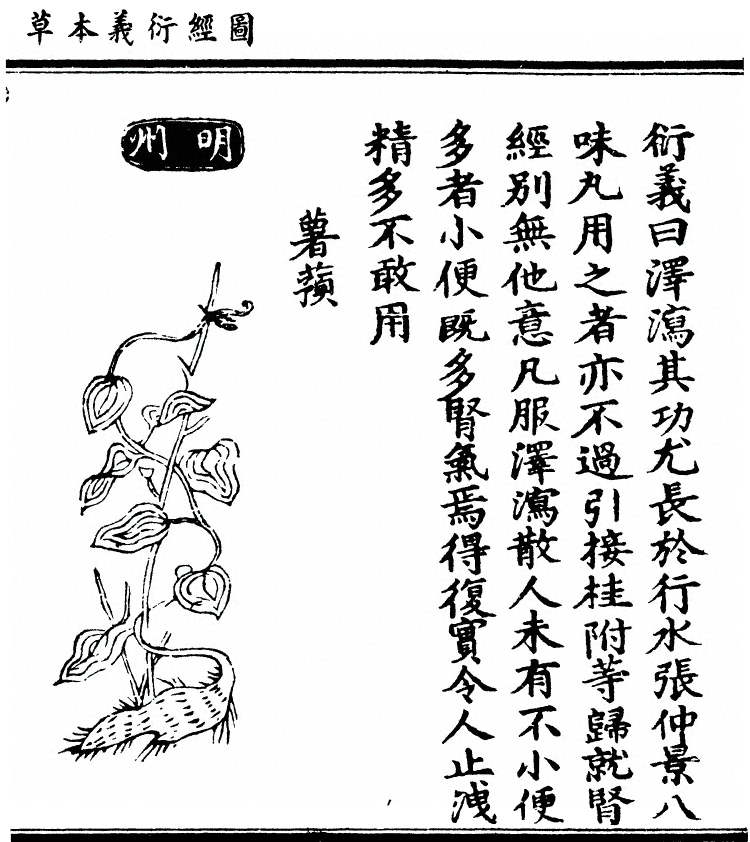 圖經衍義本草
衍義曰澤瀉其功尤長於行水張仲景八
味丸用之者亦不過引接桂附等歸就腎
經別無他意凡服澤瀉散人未有不小便
多者小便既多腎氣焉得復實令人止洩
精多不敢用
薯蕷
明州